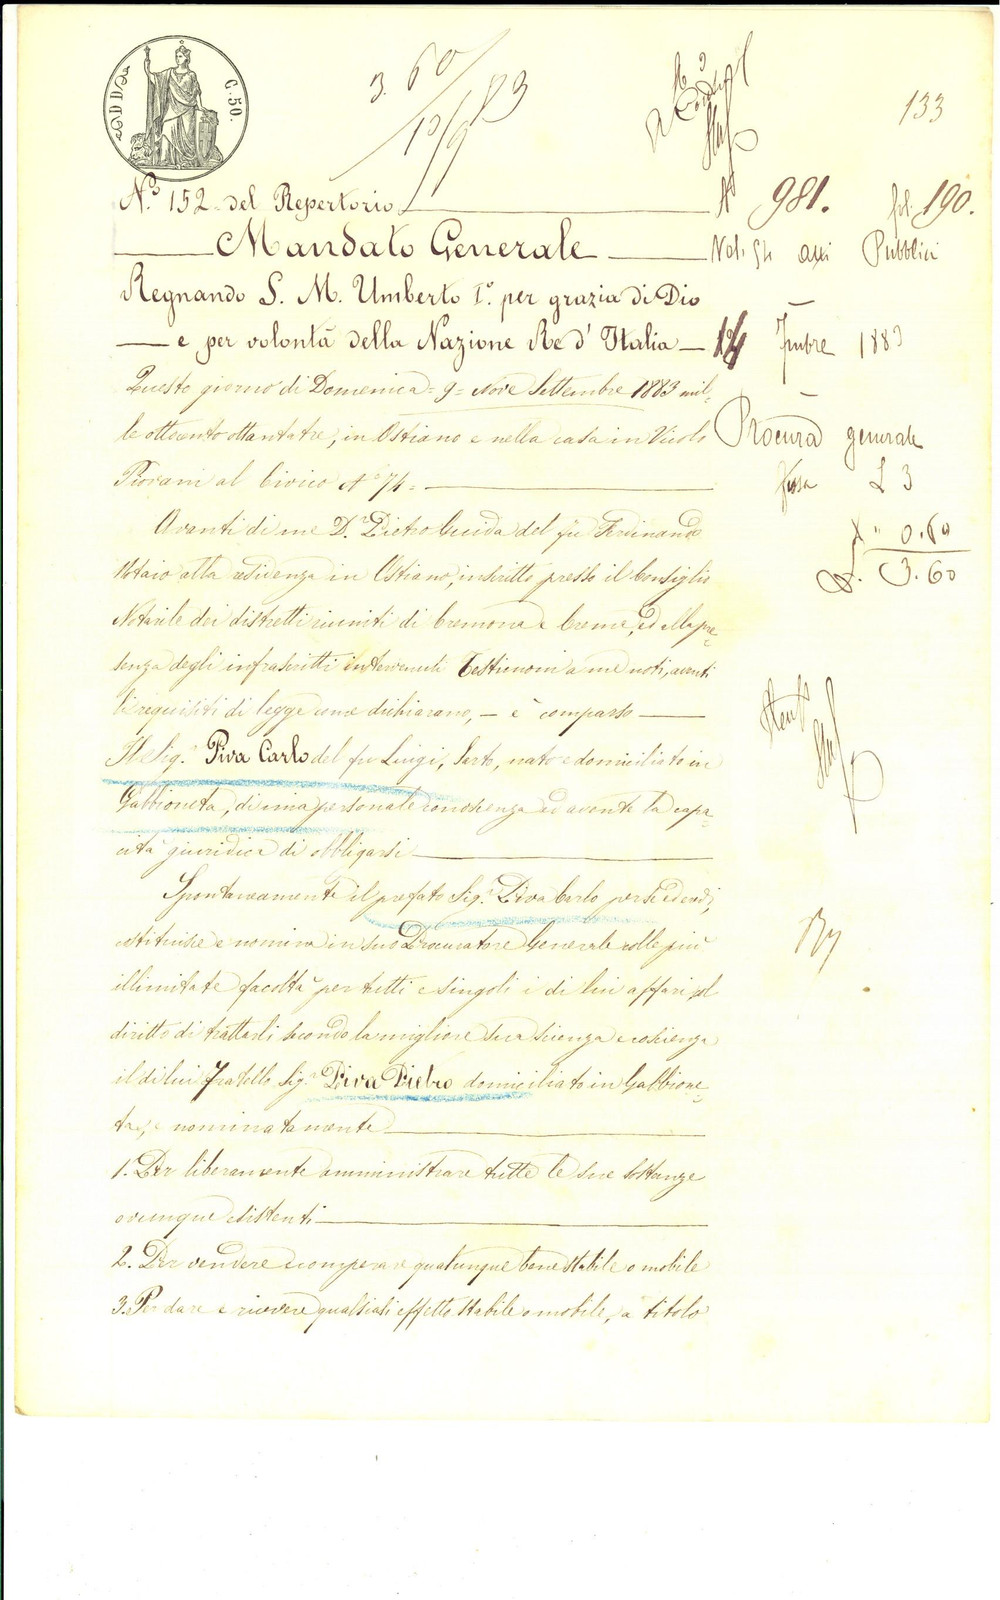 C. 50.
3. 60
10/9 83
133
N.º 152. del Repertorio
Nº 981. fol. 190.
Mandato Generale
Atti Pubblici
Regnando S. M. Umberto Iº. per grazia di Dio
e per volontà della Nazione Re d' Italia
7mbre 1883
Questo giorno di Domenica = 9 = nove Settembre 1883 mil-
le ottocento ottantatre, in Ostiano e nella casa in Vicolo
Procura generale
Piovani al Civico Nº 74 =
Tassa L 3
Avanti di me D.r Pietro Guida del fu Ferdinando
0.60
Notaio alla residenza in Ostiano, inscritto presso il Consiglio
L. 3.60
Notarile dei distretti riuniti di Cremona e Crema, ed alla pre-
senza degli infrascritti intervenuti Testimoni a me noti, aventi
i requisiti di legge come dichiarano, - è comparso
Il Sig.r Piva Carlo del fu Luigi, Sarto, nato e domiciliato in
Gabbioneta, di mia personale conoscenza ed avente la capa-
cità giuridica di obbligarsi
Spontaneamente il prefato Sig.r Piva Carlo per se ed eredi,
costituisce e nomina in suo Procuratore Generale colle più
illimitate facoltà per tutti e singoli i di lui affari, col
diritto di trattarli secondo la migliore sua scienza e coscienza
il di lui Fratello Sig.r Piva Pietro domiciliato in Gabbione-
ta, e nominatamente
1. Per liberamente amministrare tutte le sue sostanze
ovunque esistenti
2. Per vendere e comperare qualunque bene stabile o mobile
3. Per dare e ricevere qualsiasi effetto stabile o mobile, a titolo